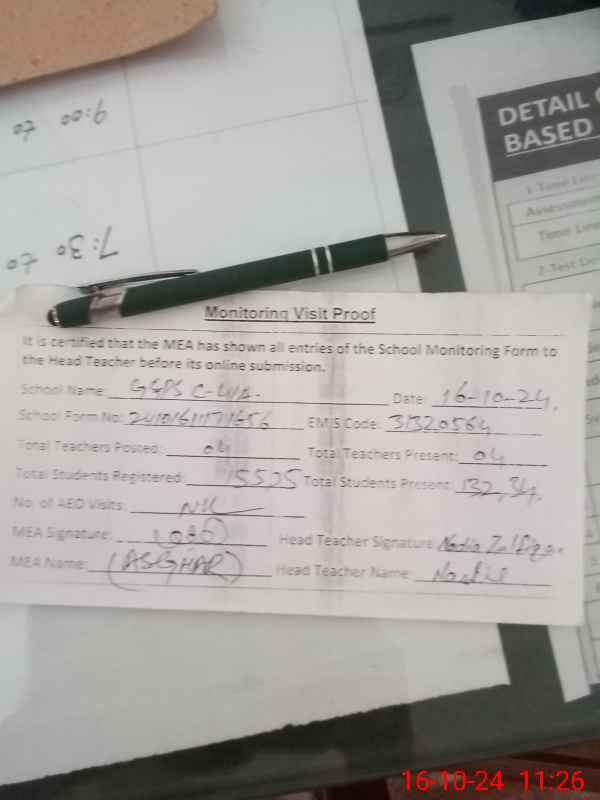 9:00 to
7:30 to
DETAIL
BASED
1. Time
Time
2. Test
Monitoring Visit Proof
It is certified that the MEA has shown all entries of the School Monitoring Form to
the Head Teacher before its online submission.
School Name: GGPS Date: 16-10-24.
School Form No: EMIS Code: 31320564
Total Teachers Posted: 04 Total Teachers Present: 04
Total Students Registered: Total Students Present: 132, 34.
No. of AEO Visits: Nil
MEA Signature: Head Teacher Signature Nadia
MEA Name: (ASGHAR) Head Teacher Name: Nadia
16-10-24 11:26